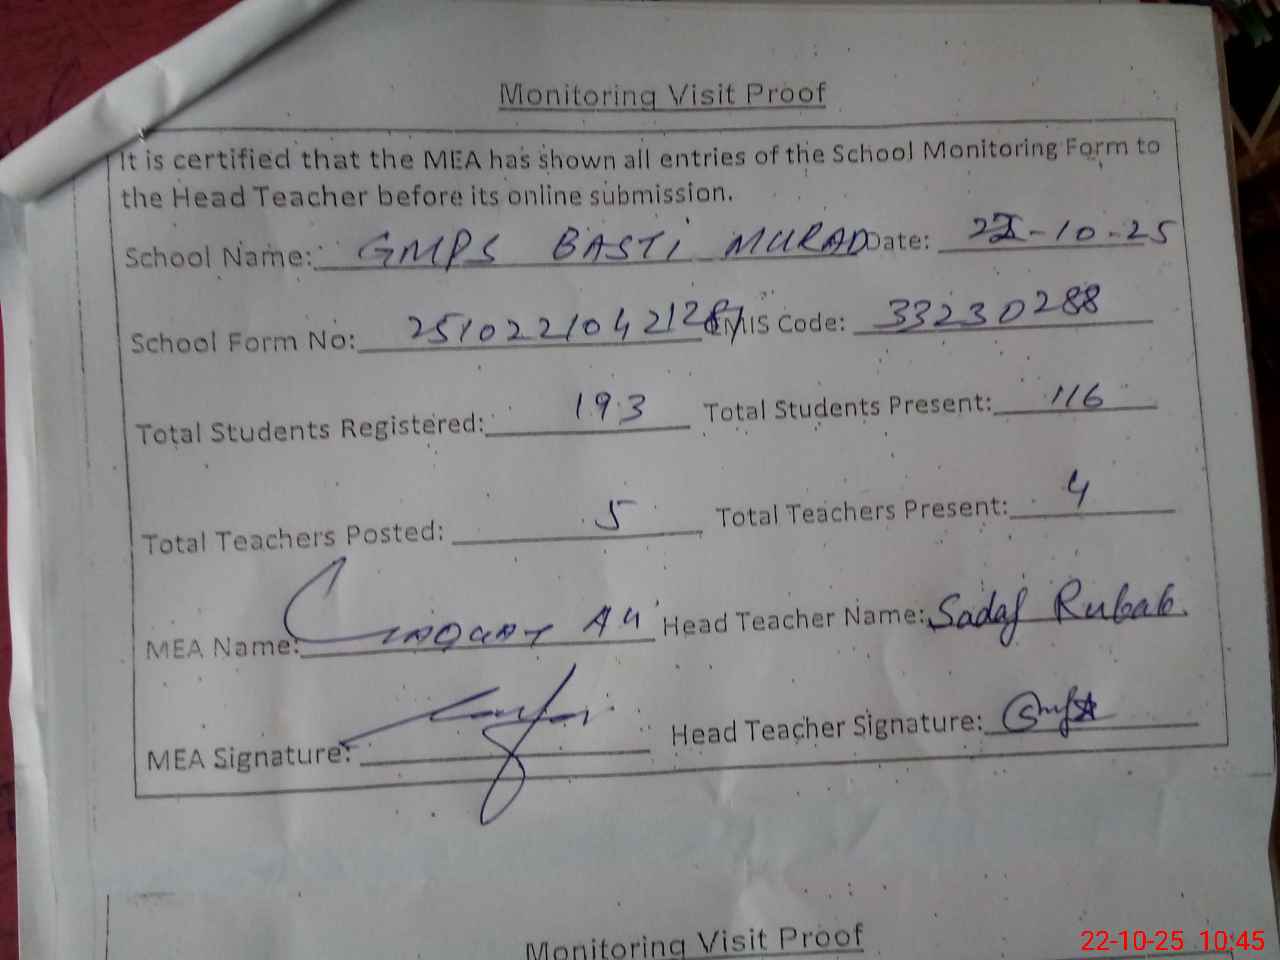 Monitoring Visit Proof
It is certified that the MEA has shown all entries of the School Monitoring Form to
the Head Teacher before its online submission.
School Name: GMPS BASTI MURAD Date: 22-10-25
School Form No: 2510221042128 EMIS Code: 33230288
Total Students Registered: 193 Total Students Present: 116
Total Teachers Posted: 5 Total Teachers Present: 4
MEA Name: Liaquat Ali Head Teacher Name: Sadaf Rubab.
MEA Signature: Head Teacher Signature:
Monitoring Visit Proof
22-10-25 10:45